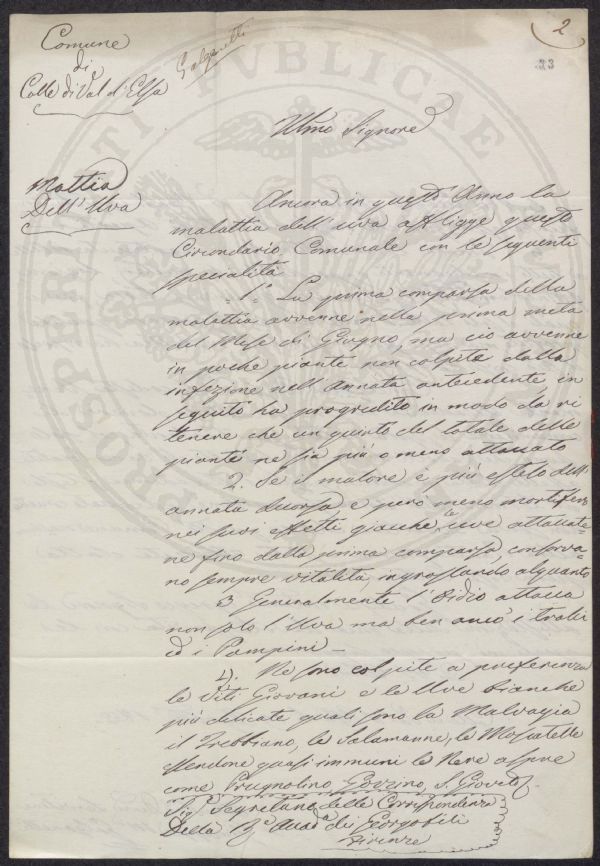 2
33
Comune
di
Colle di Val d'Elsa
Mattia
Dell'Uva
PROSPERITATI PUBLICAE
Illmo Signore
Ancora in quest'Anno la
malattia dell'uva affligge questo
Circondario Comunale con le seguenti
specialità
1.° La prima comparsa della
malattia avvenne nella prima metà
del Mese di Giugno, ma ciò avvenne
in poche piante non colpite dalla
infezione nell'annata antecedente, in
seguito ha progredito in modo da ri
tenere che un quinto del totale delle
piante ne sia più o meno attaccato
2. Se il malore è più esteso dell'
annata decorsa è però meno mortifero
nei suoi effetti giacchè le uve attaccate
ne fino dalla prima comparsa, conserva=
no sempre vitalità, ingrossando alquanto
3 Generalmente l'Oidio attacca
non solo l'Uva ma ben anco i tralci
ed i Pampini —
4). Ne sono colpite a preferenza
le Viti Giovani e le Uve bianche
più delicate quali sono la Malvagia
il Trebbiano, le Salamanne, le Moscatelle
essendone quasi immuni le Nere aspre
come Prugnolino, Gorzino, S. Gioveto
Sig. Segretario delle Corrispondenze
Della R. Accad. dei Georgofili
Firenze